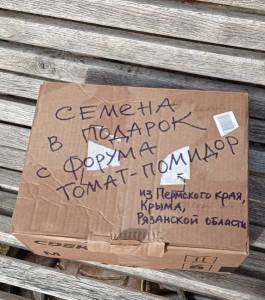 СЕМЕНА
В ПОДАРОК
С ФОРУМА
ТОМАТ-ПОМИДОР
из Пермского края,
Крыма,
Рязанской области
M